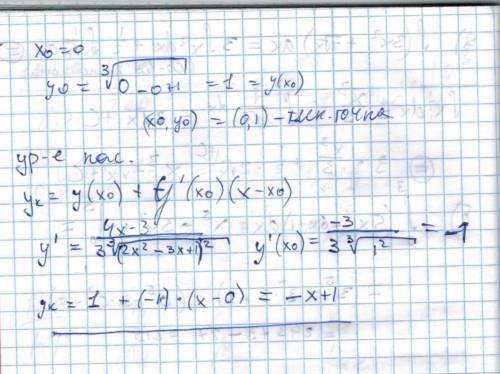 x₀ = 0
y₀ = ∛(0 - 0 + 1) = 1 = y(x₀)
(x₀, y₀) = (0, 1) - кас. точка
ур-е кас.
yₖ = y(x₀) + y'(x₀)(x-x₀)
y' = (4x-3)/(3∛(2x² - 3x + 1)²) y'(x₀) = -3/(3∛1²) = -1
yₖ = 1 + (-1)·(x-0) = -x+1